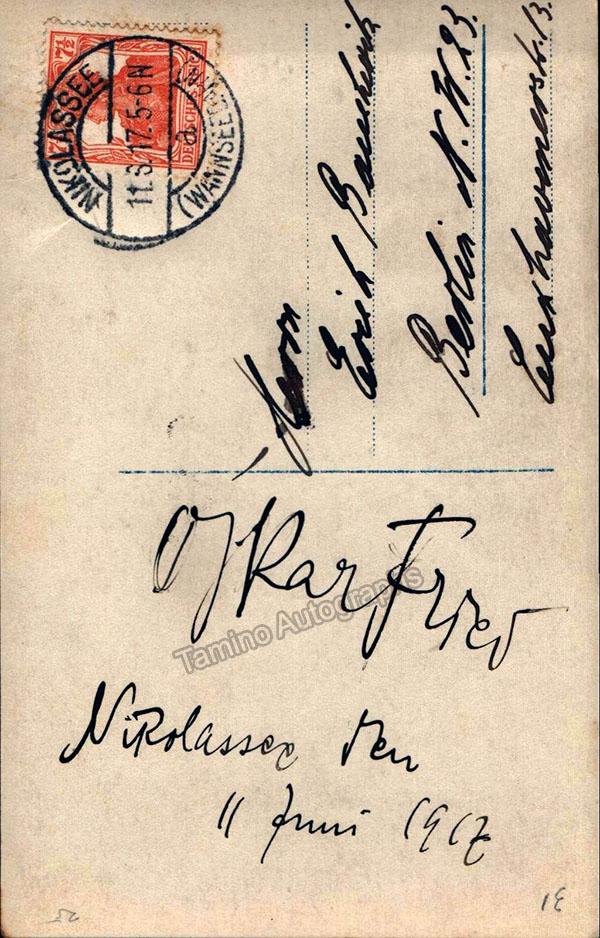 7½
DEUTSCHES REICH
NIKOLASSEE
11.6.17.5-6N
a
(WANNSEEB
Herrn
Erich
Berlin N.W. 23.
Cuxhavenerstr. 13.
Oskar Fried
Nikolassee den
11 Juni 1917
Tamino Autographs